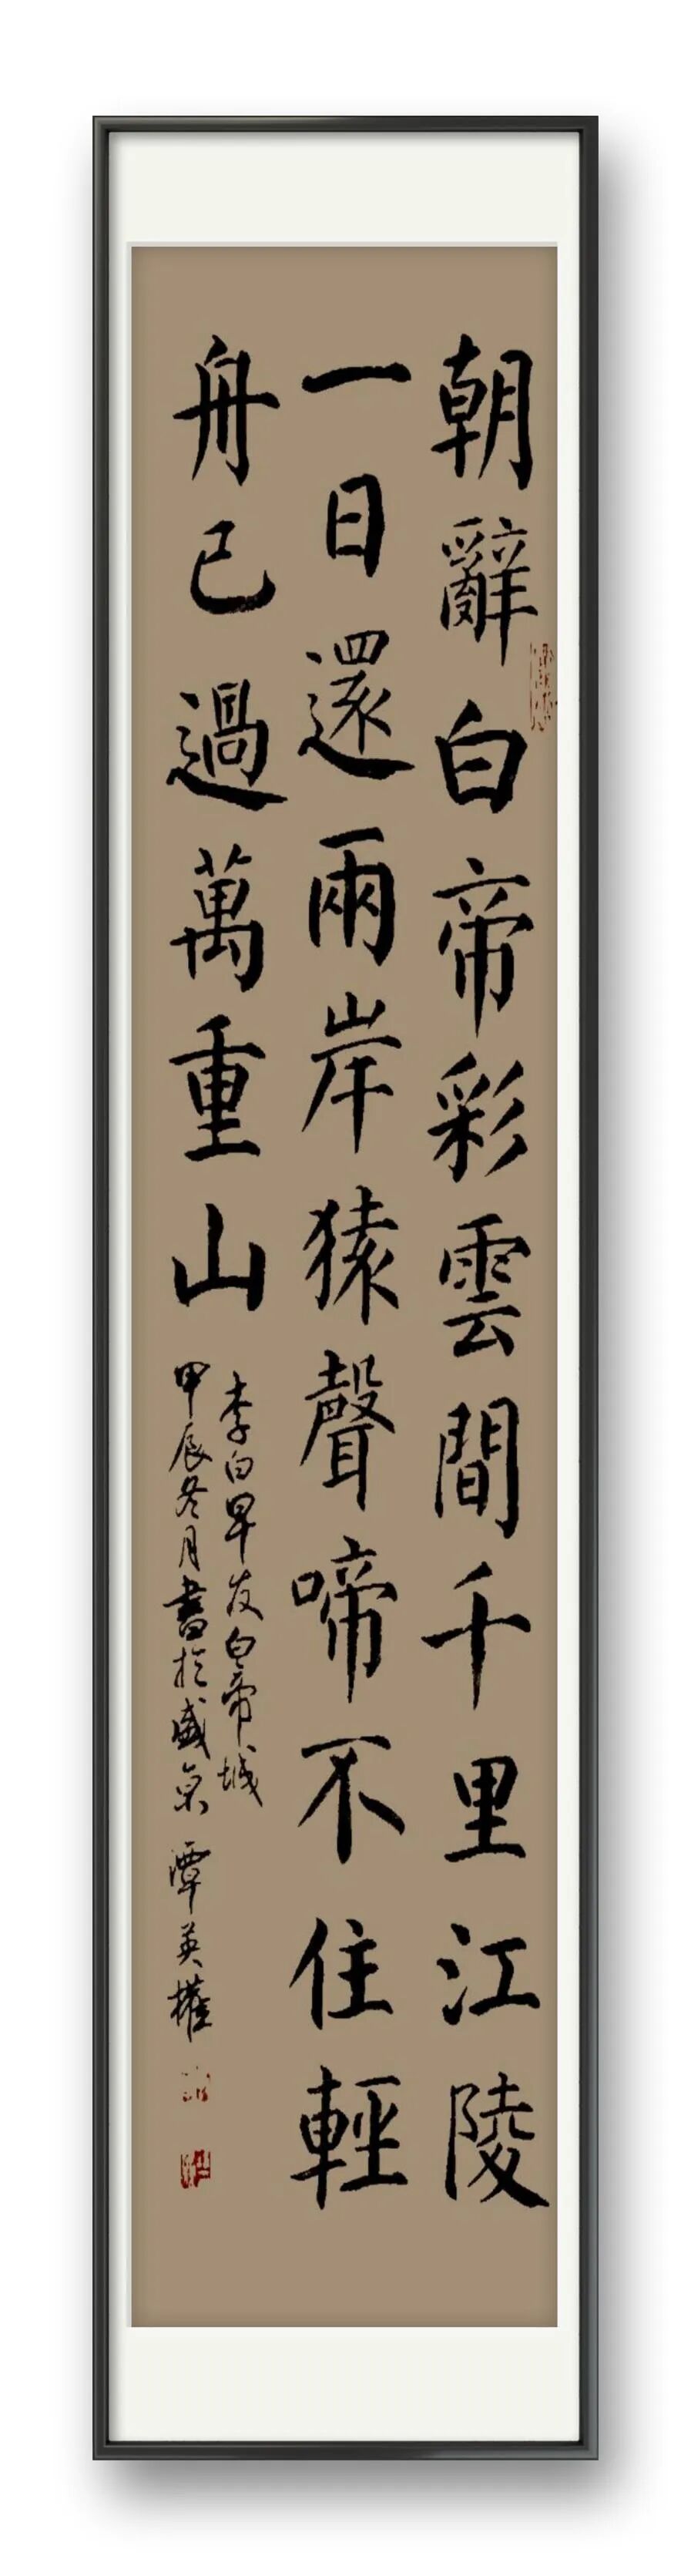 朝辭白帝彩雲間千里江陵
一日還兩岸猿聲啼不住輕
舟已過萬重山
李白早发白帝城
甲辰冬月書於盛京 譚英權